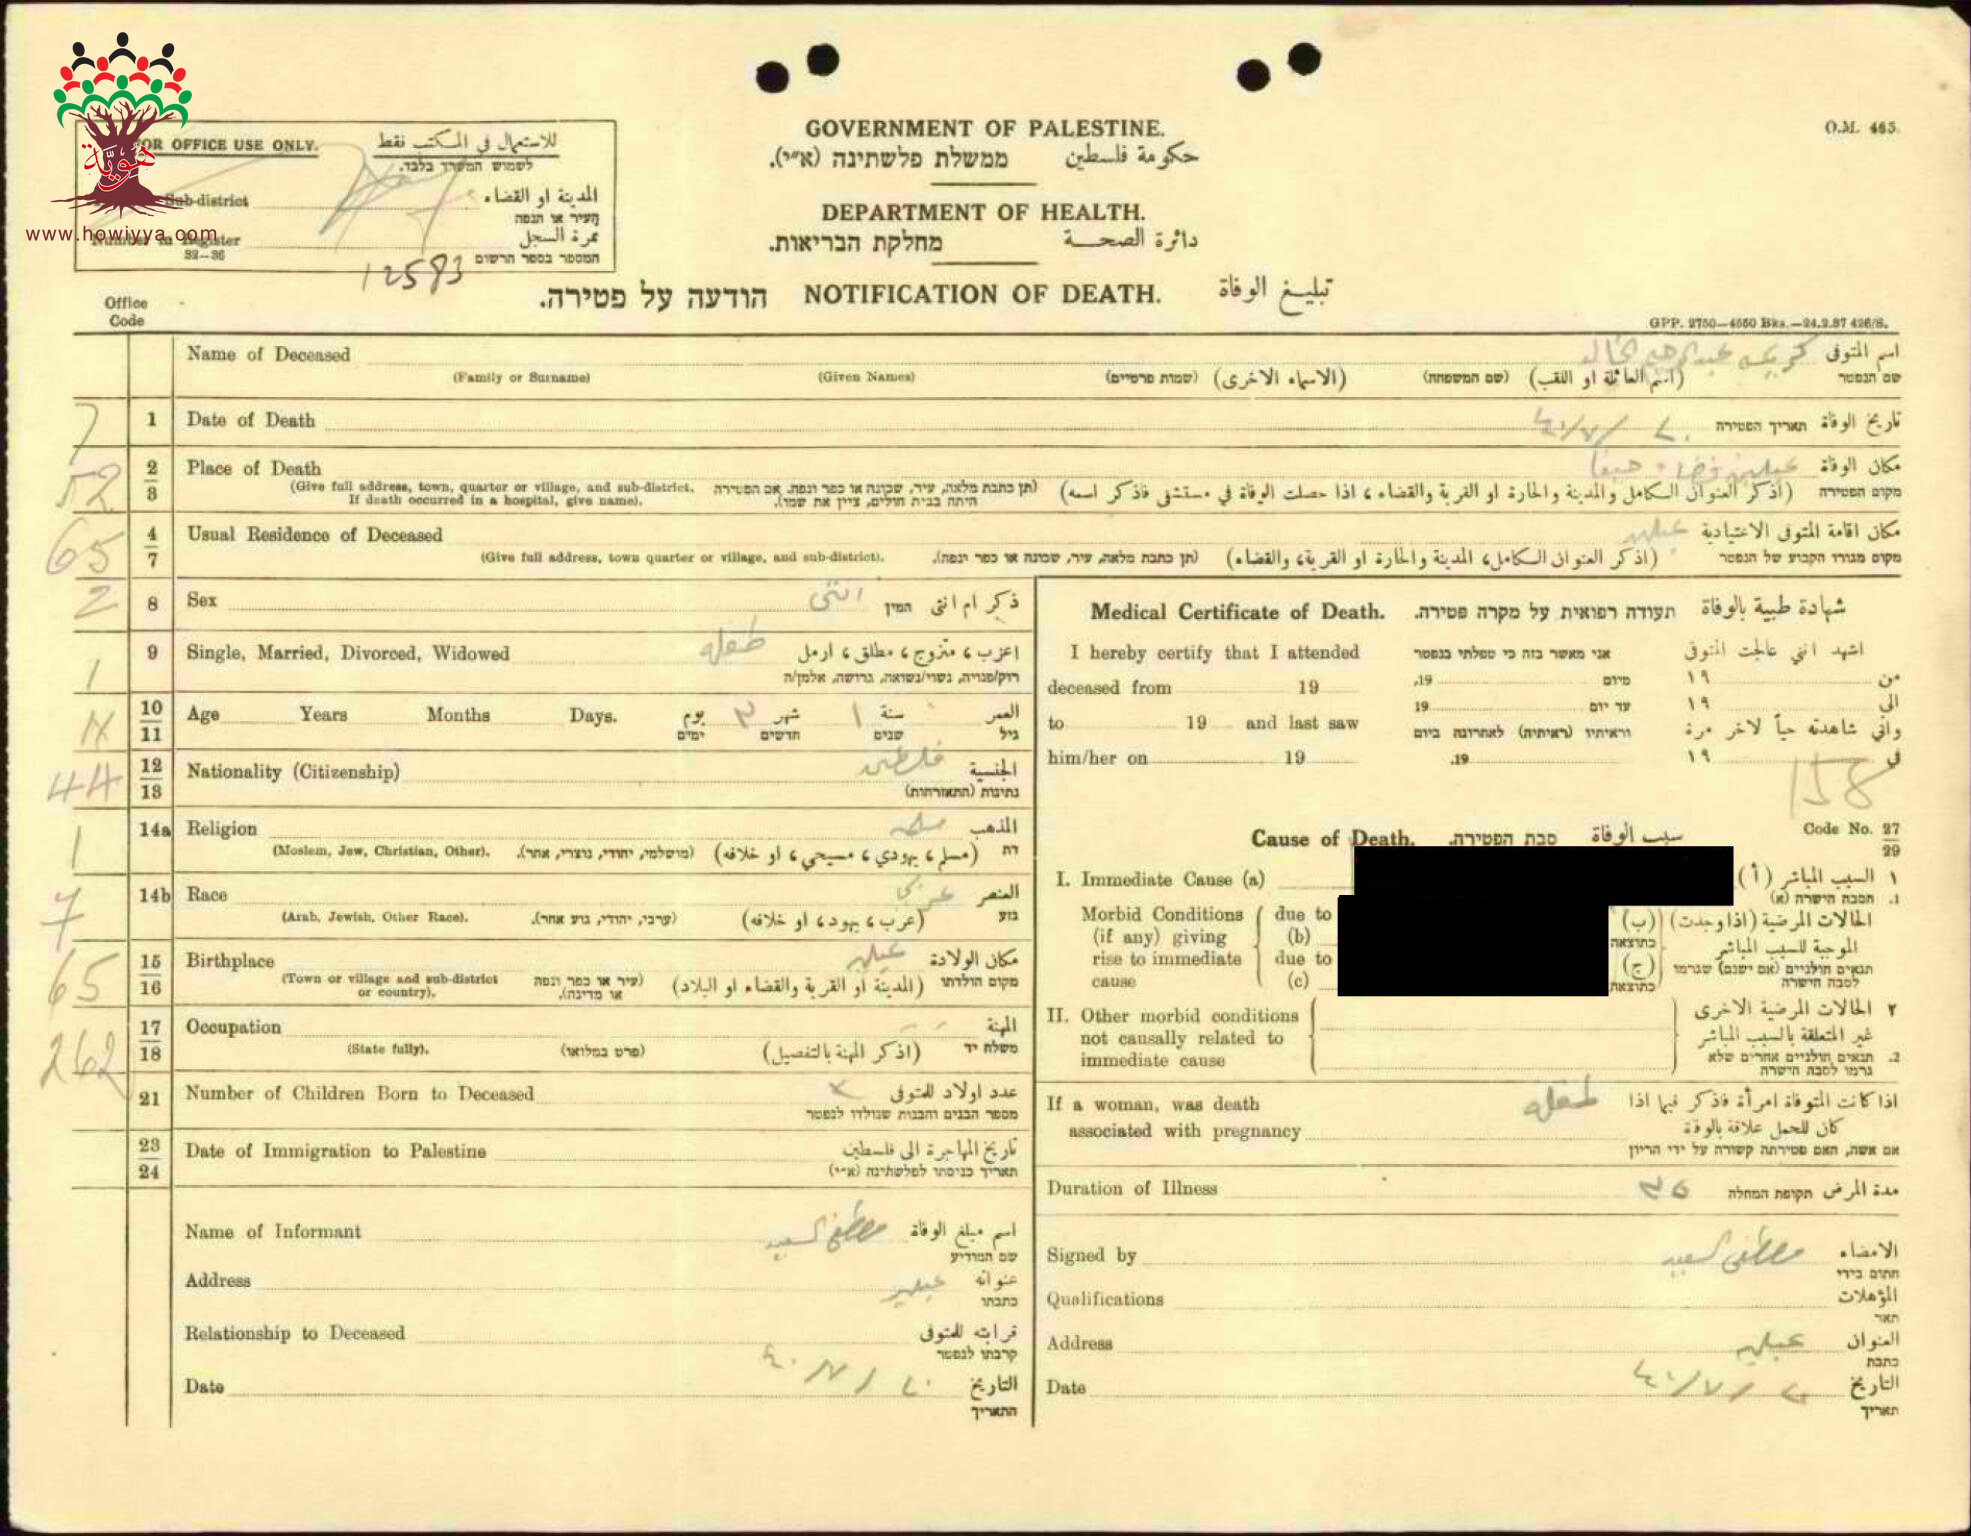 هوية
www.howiyya.com
FOR OFFICE USE ONLY. للاستعمال في المكتب فقط
לשמוש המשרד בלבד.
Sub-district المدينة او القضاء
העיר או הנפה
Number in Register نمرة السجل
32—36 המספר בספר הרשום
12583
O.M. 465.
GOVERNMENT OF PALESTINE.
ממשלת פלשתינה (א״י). حكومة فلسطين
DEPARTMENT OF HEALTH.
מחלקת הבריאות. دائرة الصحة
הודעה על פטירה. NOTIFICATION OF DEATH. تبليغ الوفاة
Office
Code
GPP. 2750—4550 Bks.—24.2.37 426/S.
Name of Deceased اسم المتوفى
(Family or Surname) (Given Names) (שמות פרטיים) (الاسماء الاخرى) (שם המשפחה) (اسم العائلة او اللقب) שם הנפטר
7 1 Date of Death תאריך הפטירה تاريخ الوفاة
52 2 3 Place of Death مكان الوفاة عبلين قضاء حيفا
(Give full address, town, quarter or village, and sub-district. If death occurred in a hospital, give name).
(תן כתבת מלאה, עיר, שכונה או כפר ונפה. אם הפטירה היתה בבית חולים, ציין את שמו).
(اذكر العنوان الكامل والمدينة والحارة او القرية والقضاء، اذا حصلت الوفاة في مستشفى فاذكر اسمه) מקום הפטירה
65 4 7 Usual Residence of Deceased مكان اقامة المتوفى الاعتيادية عبلين
(Give full address, town quarter or village, and sub-district). (תן כתבת מלאה, עיר, שכונה או כפר ונפה). (اذكر العنوان الكامل، المدينة والحارة او القرية، والقضاء) מקום מגורו הקבוע של הנפטר
2 8 Sex انثى המין ذكر ام انثى
1 9 Single, Married, Divorced, Widowed طفله اعزب، متزوج، مطلق، ارمل
רוק/פנויה, נשוי/נשואה, גרושה, אלמן/ה
10 11 Age Years Months Days. يوم ٣ شهر ١ سنة العمر
ימים חדשים שנים גיל
44 12 13 Nationality (Citizenship) فلسطين الجنسية
נתינות (התאזרחות)
1 14a Religion مسلمه المذهب
(Moslem, Jew, Christian, Other). (מושלמי, יהודי, נוצרי, אחר). (مسلم، يهودي، مسيحي، او خلافه) דת
7 14b Race عربي العنصر
(Arab, Jewish, Other Race). (ערבי, יהודי, גזע אחר). (عرب، يهود، او خلافه) גזע
65 15 16 Birthplace عبلين مكان الولادة
(Town or village and sub-district or country). (עיר או כפר ונפה או מדינה). (المدينة او القرية والقضاء او البلاد) מקום הולדתו
262 17 18 Occupation المهنة
(State fully). (פרט במלואו) (اذكر المهنة بالتفصيل) משלח יד
21 Number of Children Born to Deceased عدد اولاد المتوفى
מספר הבנים והבנות שנולדו לנפטר
23 24 Date of Immigration to Palestine تاريخ المهاجرة الى فلسطين
תאריך כניסתו לפלשתינה (א״י)
Name of Informant مصطفى السعيد اسم مبلغ الوفاة
שם המודיע
Address عبلين عنوانه
כתבתו
Relationship to Deceased قرابته للمتوفى
קרבתו לנפטר
Date التاريخ
התאריך
Medical Certificate of Death. תעודה רפואית על מקרה פטירה. شهادة طبية بالوفاة
I hereby certify that I attended אני מאשר בזה כי טפלתי בנפטר اشهد انني عالجت المتوفى
deceased from 19 19, מיום من ١٩
to 19 and last saw 19 עד יום الى ١٩
וראיתיו (ראיתיה) לאחרונה ביום واني شاهدته حياً لاخر مرة
him/her on 19 19. في ١٩
158
Code No. 27 29
Cause of Death. סבת הפטירה. سبب الوفاة
I. Immediate Cause (a) ١ السبب المباشر (أ)
1. הסבה הישרה (א)
Morbid Conditions due to الحالات المرضية (اذا وجدت) (ب)
(if any) giving (b) כתוצאה الموجبة للسبب المباشر
rise to immediate due to (ج) תנאים חולניים (אם ישנם) שגרמו
cause (c) כתוצאה לסבה הישרה
II. Other morbid conditions ٢ الحالات المرضية الاخرى
not causally related to غير المتعلقة بالسبب المباشر
immediate cause 2. תנאים חולניים אחרים שלא
גרמו לסבה הישרה
If a woman, was death طفله اذا كانت المتوفاة امرأة فاذكر فيما اذا
associated with pregnancy كان للحمل علاقة بالوفاة
אם אשה, האם פטירתה קשורה על ידי הריון
Duration of Illness תקופת המחלה مدة المرض
Signed by مصطفى السعيد الامضاء
חתום בידי
Qualifications المؤهلات
תאר
Address عبلين العنوان
כתבת
Date التاريخ
תאריך